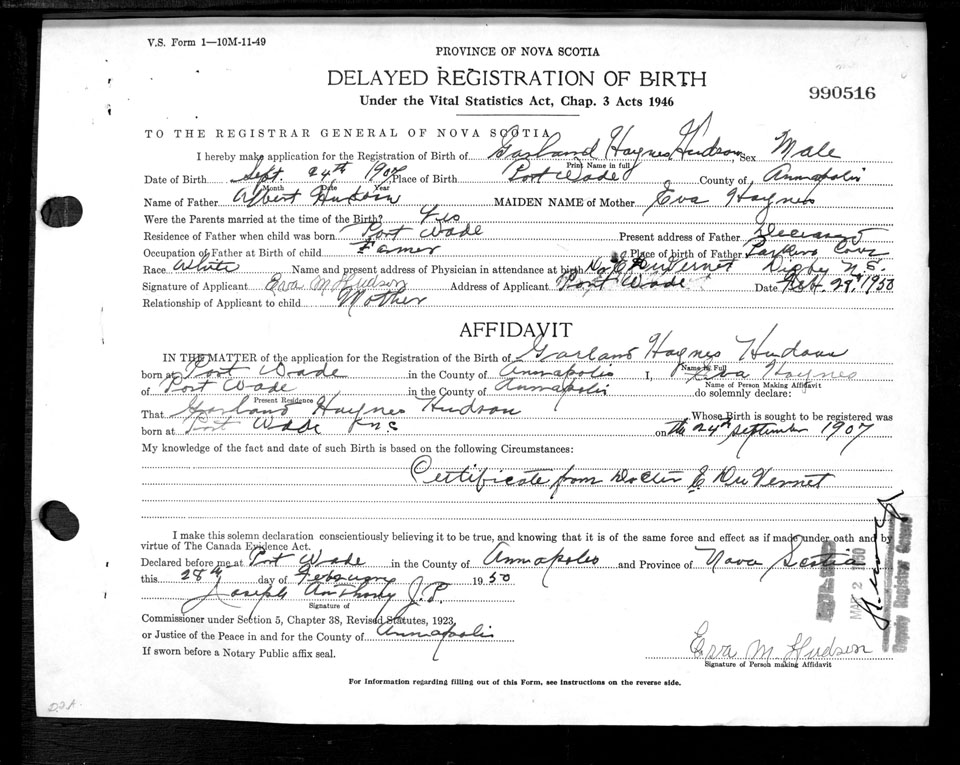 V.S. Form 1—10M-11-49
PROVINCE OF NOVA SCOTIA
DELAYED REGISTRATION OF BIRTH
990516
Under the Vital Statistics Act, Chap. 3 Acts 1946
TO THE REGISTRAR GENERAL OF NOVA SCOTIA
I hereby make application for the Registration of Birth of Garland Haynes Hudson Sex Male
Print Name in full
Date of Birth Sept. 24th 1907 Place of Birth Port Wade County of Annapolis
Month Date Year
Name of Father Albert Hudson MAIDEN NAME of Mother Eva Haynes
Were the Parents married at the time of the Birth? Yes
Residence of Father when child was born Port Wade Present address of Father Deceased
Occupation of Father at Birth of child Farmer Place of birth of Father Parkers Cove
Race White Name and present address of Physician in attendance at birth Dr DuVernet Digby N.S.
Signature of Applicant Eva M Hudson Address of Applicant Port Wade Date Feb. 29, 1950
Relationship of Applicant to child Mother
AFFIDAVIT
IN THE MATTER of the application for the Registration of the Birth of Garland Haynes Hudson
Name in Full
born at Port Wade in the County of Annapolis I, Eva Haynes
Name of Person Making Affidavit
of Port Wade in the County of Annapolis do solemnly declare:
Present Residence
That Garland Haynes Hudson Whose Birth is sought to be registered was
born at Port Wade N.S on the 24th September 1907
My knowledge of the fact and date of such Birth is based on the following Circumstances:
Certificate from Doctor E DuVernet
I make this solemn declaration conscientiously believing it to be true, and knowing that it is of the same force and effect as if made under oath and by
virtue of The Canada Evidence Act.
Declared before me at Port Wade in the County of Annapolis and Province of Nova Scotia
this 28th day of February 1950
Joseph Anthony J.P.
Signature of
Commissioner under Section 5, Chapter 38, Revised Statutes, 1923,
or Justice of the Peace in and for the County of Annapolis
If sworn before a Notary Public affix seal.
Eva M Hudson
Signature of Person making Affidavit
Deputy Registrar General
For Information regarding filling out of this Form, see instructions on the reverse side.